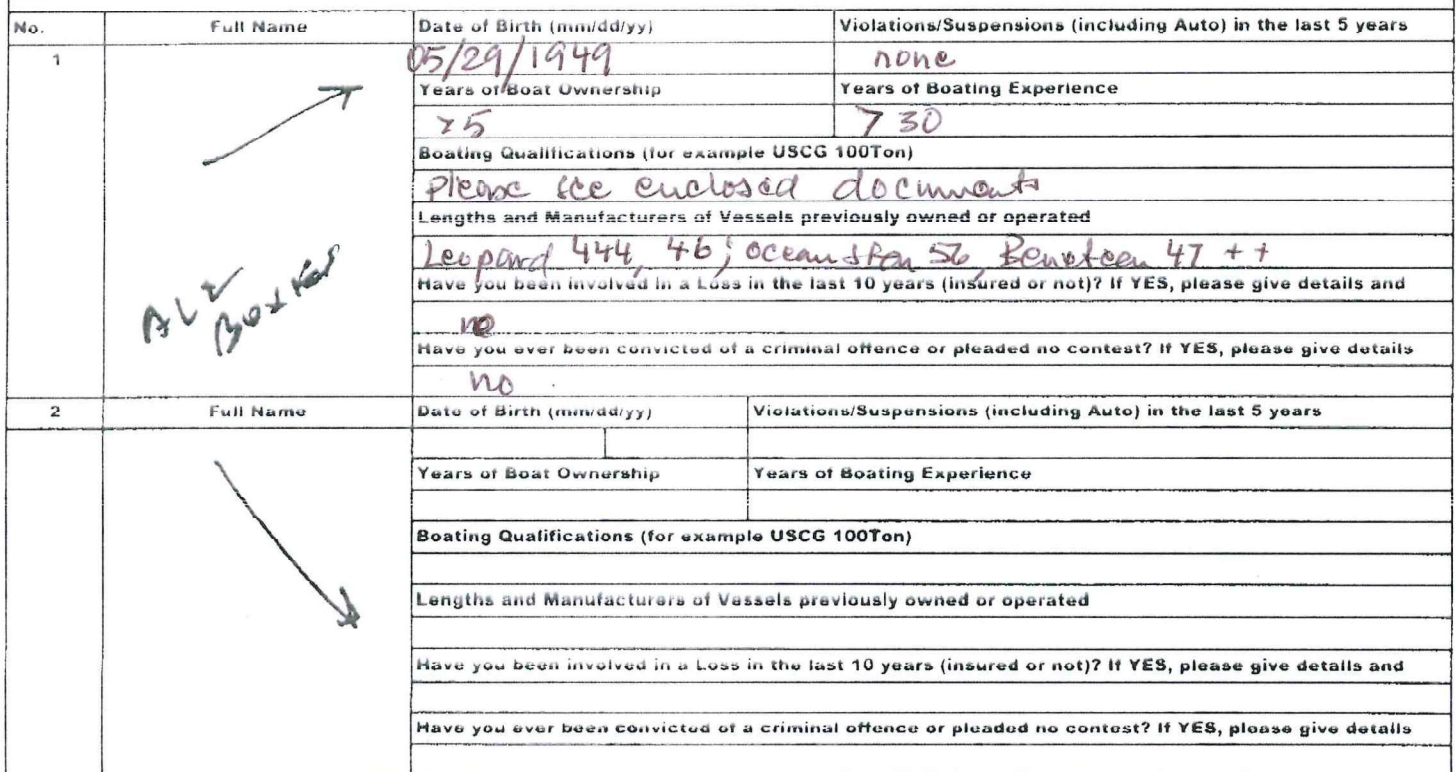 No. Full Name Date of Birth (mm/dd/yy) Violations/Suspensions (including Auto) in the last 5 years
1 05/29/1949 none
Years of Boat Ownership Years of Boating Experience
75 7 30
Boating Qualifications (for example USCG 100Ton)
Please see enclosed documents
Lengths and Manufacturers of Vessels previously owned or operated
Leopard 444, 46; ocean 56, Beneteau 47 ++
Have you been involved in a Loss in the last 10 years (insured or not)? If YES, please give details and
no
Have you ever been convicted of a criminal offence or pleaded no contest? If YES, please give details
no
2 Full Name Date of Birth (mm/dd/yy) Violations/Suspensions (including Auto) in the last 5 years
Years of Boat Ownership Years of Boating Experience
Boating Qualifications (for example USCG 100Ton)
Lengths and Manufacturers of Vessels previously owned or operated
Have you been involved in a Loss in the last 10 years (insured or not)? If YES, please give details and
Have you ever been convicted of a criminal offence or pleaded no contest? If YES, please give details